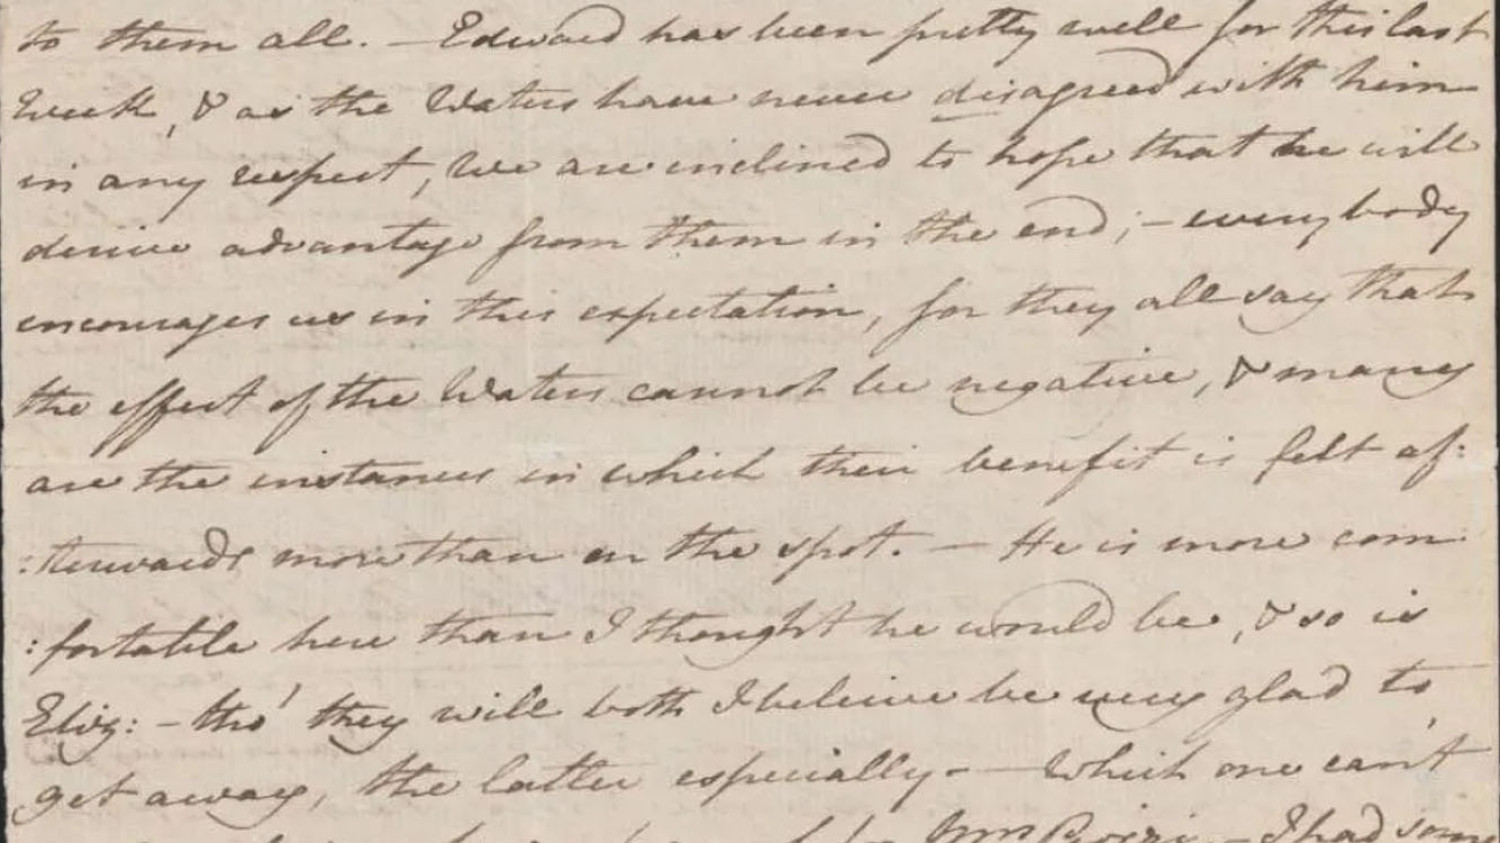 to them all. — Edward has been pretty well for this last
Week, & as the Waters have never disagreed with him
in any respect, We are inclined to hope that he will
derive advantage from them in the end; — every body
encourages us in this expectation, for they all say that
the effect of the Waters cannot be negative, & many
are the instances in which their benefit is felt af:
:terwards more than on the spot. — He is more com:
:fortable here than I thought he would be, & so is
Eliz: — tho' they will both I beleive be very glad to
get away, the latter especially — Which one can't
Mrs Piozzi. — I had some